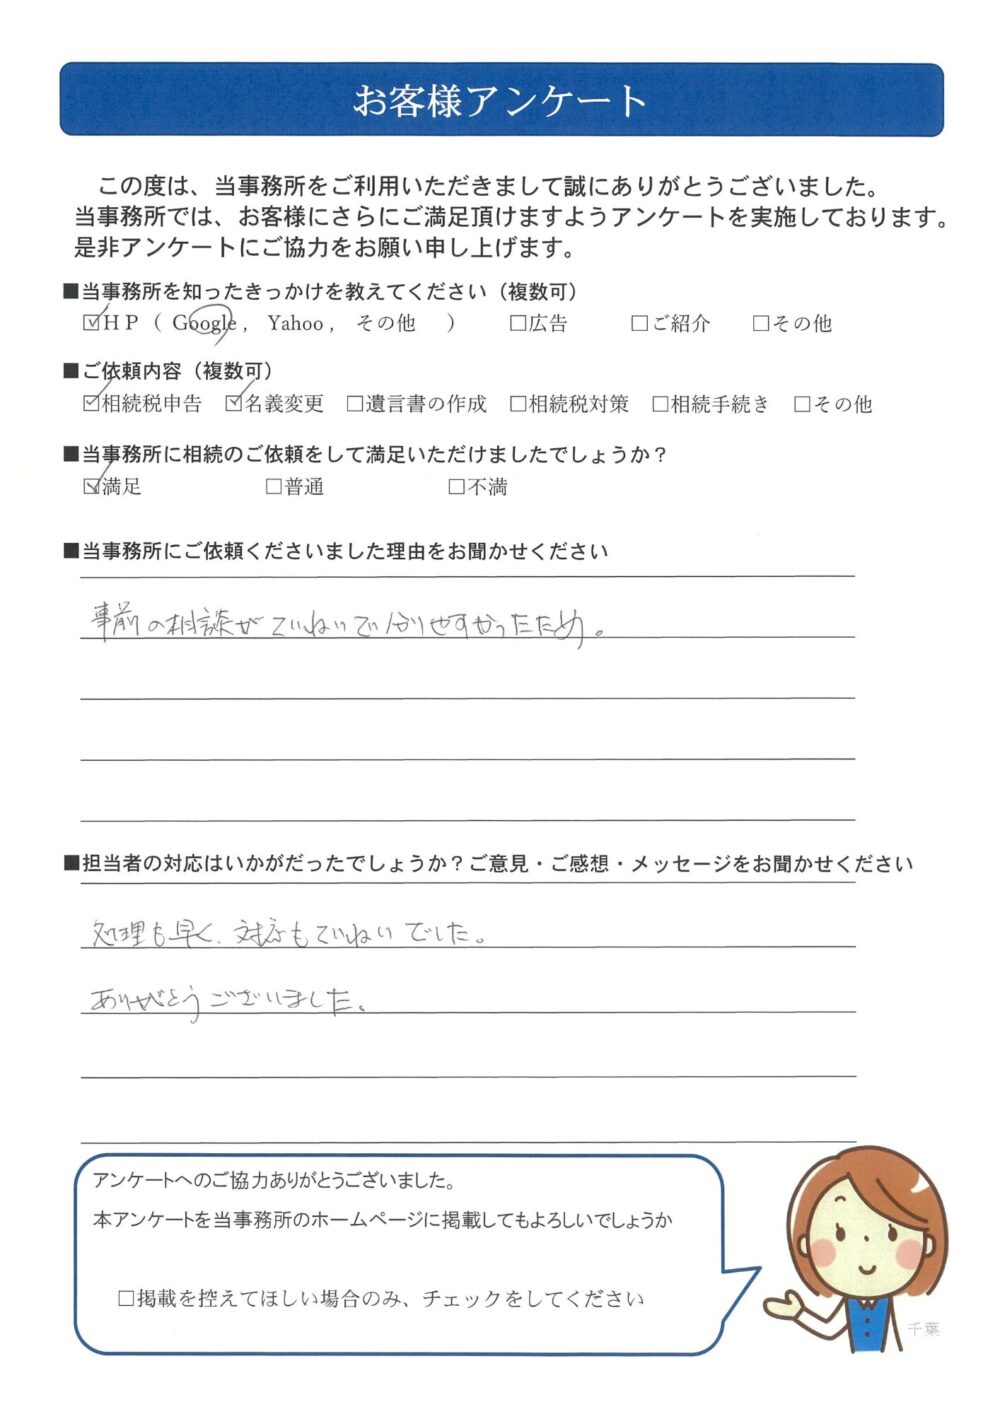 お客様アンケート
この度は、当事務所をご利用いただきまして誠にありがとうございました。
当事務所では、お客様にさらにご満足頂けますようアンケートを実施しております。
是非アンケートにご協力をお願い申し上げます。
■当事務所を知ったきっかけを教えてください（複数可）
☑ＨＰ（ Google ,　Yahoo ,　その他　）　□広告　□ご紹介　□その他
■ご依頼内容（複数可）
☑相続税申告　☑名義変更　□遺言書の作成　□相続税対策　□相続手続き　□その他
■当事務所に相続のご依頼をして満足いただけましたでしょうか？
☑満足　□普通　□不満
■当事務所にご依頼くださいました理由をお聞かせください
事前の相談がていねいで分りやすかったため。
■担当者の対応はいかがだったでしょうか？ご意見・ご感想・メッセージをお聞かせください
処理も早く、対応もていねいでした。
ありがとうございました。
アンケートへのご協力ありがとうございました。
本アンケートを当事務所のホームページに掲載してもよろしいでしょうか
□掲載を控えてほしい場合のみ、チェックをしてください
千葉